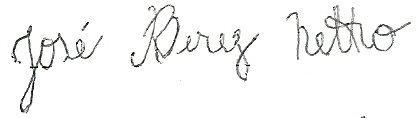 José Perez Netto